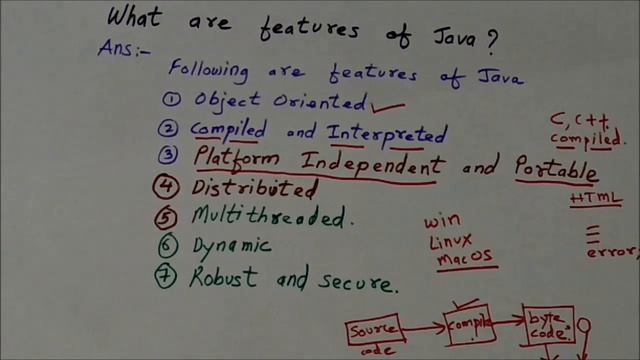 What are features of Java?
Ans:-
Following are features of Java
① Object Oriented
② Compiled and Interpreted
③ Platform Independent and Portable
④ Distributed
⑤ Multithreaded.
⑥ Dynamic
⑦ Robust and secure.
C, C++
compiled.
HTML
error,
win
Linux
MacOS
Source
code
compile
byte
code